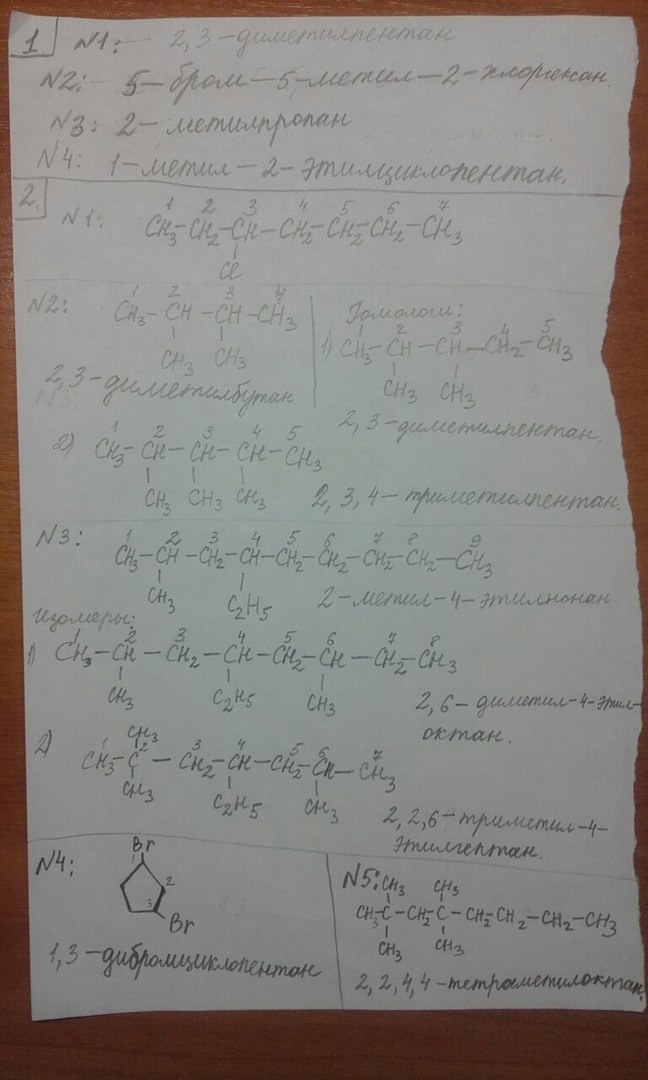 1. N1: 2,3-диметилпентан
N2: 5-бром-5-метил-2-хлоргексан.
N3: 2-метилпропан
N4: 1-метил-2-этилциклопентан.
2.
N1:
1 2 3 4 5 6 7
CH3-CH2-CH-CH2-CH2-CH2-CH3
Cl
N2:
1 2 3 4
CH3-CH-CH-CH3
CH3 CH3
2,3-диметилбутан
Гомологи:
1 2 3 4 5
1) CH3-CH-CH-CH2-CH3
CH3 CH3
2,3-диметилпентан.
1 2 3 4 5
2) CH3-CH-CH-CH-CH3
CH3 CH3 CH3
2,3,4-триметилпентан.
N3:
1 2 3 4 5 6 7 8 9
CH3-CH-CH2-CH-CH2-CH2-CH2-CH2-CH3
CH3 C2H5
2-метил-4-этилнонан.
изомеры:
1 2 3 4 5 6 7 8
1) CH3-CH-CH2-CH-CH2-CH-CH2-CH3
CH3 C2H5 CH3
2,6-диметил-4-этил-
октан.
CH3
1 2 3 4 5 6 7
2) CH3-C-CH2-CH-CH2-CH-CH3
CH3 C2H5 CH3
2,2,6-триметил-4-
этилгептан.
N4:
Br
1
2
3
Br
1,3-дибромциклопентан
N5:
CH3 CH3
CH3-C-CH2-C-CH2-CH2-CH2-CH3
CH3 CH3
2,2,4,4-тетраметилоктан.